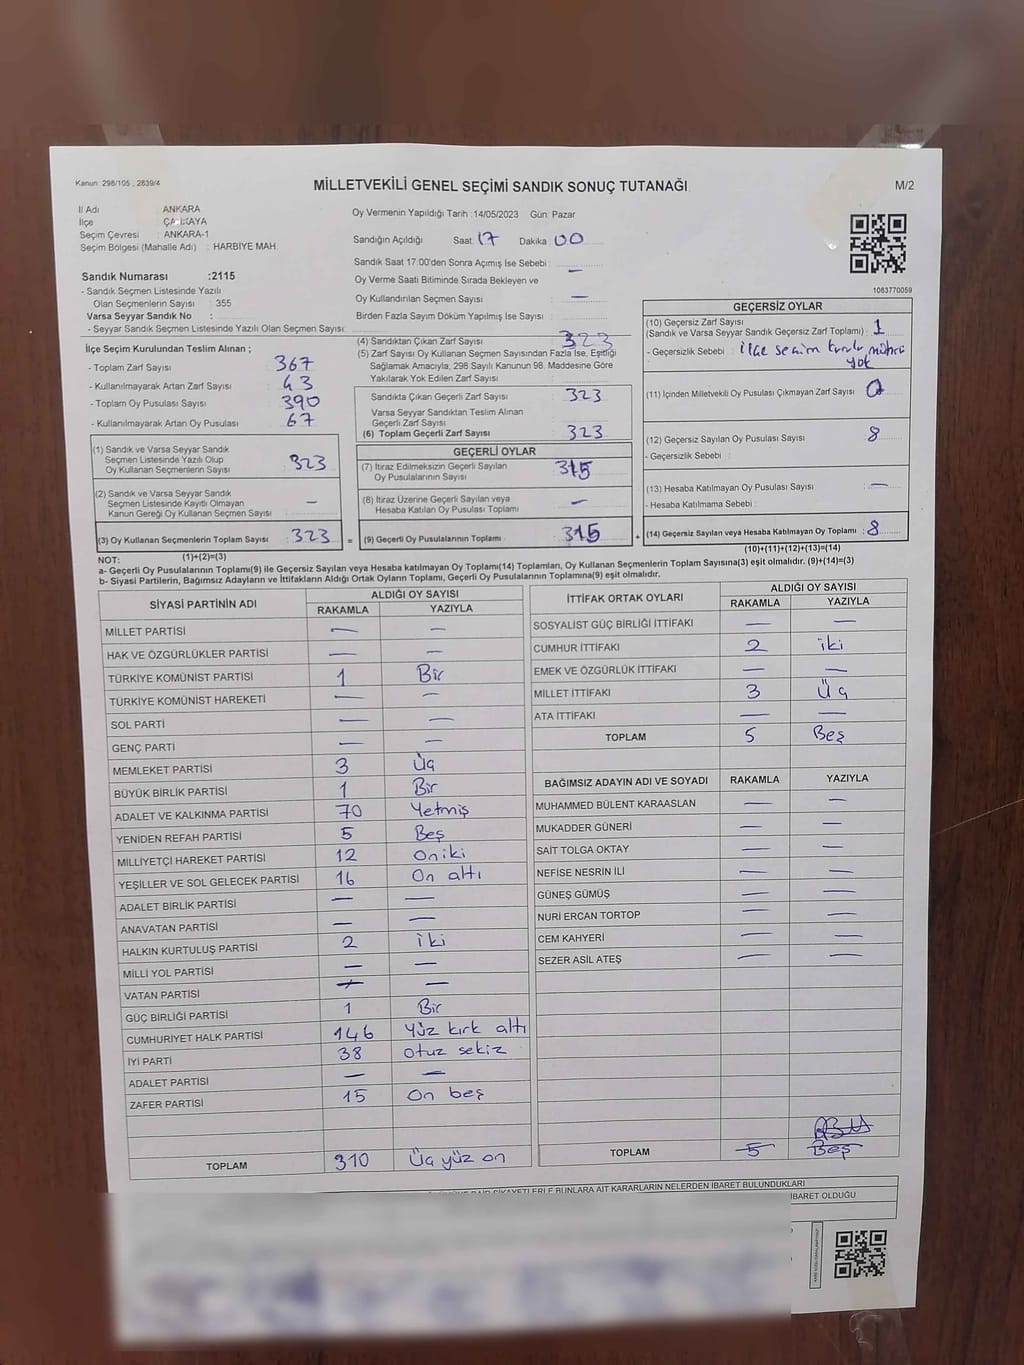 Kanun: 298/105 ; 2839/4
MİLLETVEKİLİ GENEL SEÇİMİ SANDIK SONUÇ TUTANAĞI
M/2
İl Adı ANKARA
İlçe ÇANKAYA
Seçim Çevresi : ANKARA-1
Seçim Bölgesi (Mahalle Adı) : HARBİYE MAH.
Oy Vermenin Yapıldığı Tarih :14/05/2023 Gün: Pazar
Sandığın Açıldığı Saat: 17 Dakika: 00
Sandık Saat 17:00'den Sonra Açılmış İse Sebebi : —
Oy Verme Saati Bitiminde Sırada Bekleyen ve
Oy Kullandırılan Seçmen Sayısı —
Birden Fazla Sayım Döküm Yapılmış İse Sayısı :
1083770059
Sandık Numarası :2115
- Sandık Seçmen Listesinde Yazılı
Olan Seçmenlerin Sayısı : 355
Varsa Seyyar Sandık No :
- Seyyar Sandık Seçmen Listesinde Yazılı Olan Seçmen Sayısı:
İlçe Seçim Kurulundan Teslim Alınan ;
- Toplam Zarf Sayısı : 367
- Kullanılmayarak Artan Zarf Sayısı : 43
- Toplam Oy Pusulası Sayısı : 390
- Kullanılmayarak Artan Oy Pusulası : 67
(1) Sandık ve Varsa Seyyar Sandık
Seçmen Listesinde Yazılı Olup
Oy Kullanan Seçmenlerin Sayısı : 323
(2) Sandık ve Varsa Seyyar Sandık
Seçmen Listesinde Kayıtlı Olmayan
Kanun Gereği Oy Kullanan Seçmen Sayısı: —
(3) Oy Kullanan Seçmenlerin Toplam Sayısı : 323 =
(1)+(2)=(3)
(4) Sandıktan Çıkan Zarf Sayısı : 323
(5) Zarf Sayısı Oy Kullanan Seçmen Sayısından Fazla İse, Eşitliği
Sağlamak Amacıyla, 298 Sayılı Kanunun 98. Maddesine Göre
Yakılarak Yok Edilen Zarf Sayısı :
Sandıkta Çıkan Geçerli Zarf Sayısı : 323
Varsa Seyyar Sandıktan Teslim Alınan
Geçerli Zarf Sayısı :
(6) Toplam Geçerli Zarf Sayısı : 323
GEÇERLİ OYLAR
(7) İtiraz Edilmeksizin Geçerli Sayılan
Oy Pusulalarının Sayısı : 315
(8) İtiraz Üzerine Geçerli Sayılan veya
Hesaba Katılan Oy Pusulası Toplamı : —
(9) Geçerli Oy Pusulalarının Toplamı : 315 +
GEÇERSİZ OYLAR
(10) Geçersiz Zarf Sayısı
(Sandık ve Varsa Seyyar Sandık Geçersiz Zarf Toplamı) : 1
- Geçersizlik Sebebi : ilçe seçim kurulu mührü
yok
(11) İçinden Milletvekili Oy Pusulası Çıkmayan Zarf Sayısı : 0
(12) Geçersiz Sayılan Oy Pusulası Sayısı : 8
- Geçersizlik Sebebi :
(13) Hesaba Katılmayan Oy Pusulası Sayısı : —
- Hesaba Katılmama Sebebi :
(14) Geçersiz Sayılan veya Hesaba Katılmayan Oy Toplamı : 8
(10)+(11)+(12)+(13)=(14)
NOT:
a- Geçerli Oy Pusulalarının Toplamı(9) ile Geçersiz Sayılan veya Hesaba katılmayan Oy Toplamı(14) Toplamları, Oy Kullanan Seçmenlerin Toplam Sayısına(3) eşit olmalıdır. (9)+(14)=(3)
b- Siyasi Partilerin, Bağımsız Adayların ve İttifakların Aldığı Ortak Oyların Toplamı, Geçerli Oy Pusulalarının Toplamına(9) eşit olmalıdır.
SİYASİ PARTİNİN ADI ALDIĞI OY SAYISI
RAKAMLA YAZIYLA
MİLLET PARTİSİ — —
HAK VE ÖZGÜRLÜKLER PARTİSİ — —
TÜRKİYE KOMÜNİST PARTİSİ 1 Bir
TÜRKİYE KOMÜNİST HAREKETİ — —
SOL PARTİ — —
GENÇ PARTİ — —
MEMLEKET PARTİSİ 3 Üç
BÜYÜK BİRLİK PARTİSİ 1 Bir
ADALET VE KALKINMA PARTİSİ 70 Yetmiş
YENİDEN REFAH PARTİSİ 5 Beş
MİLLİYETÇİ HAREKET PARTİSİ 12 On iki
YEŞİLLER VE SOL GELECEK PARTİSİ 16 On altı
ADALET BİRLİK PARTİSİ — —
ANAVATAN PARTİSİ — —
HALKIN KURTULUŞ PARTİSİ 2 iki
MİLLİ YOL PARTİSİ — —
VATAN PARTİSİ — —
GÜÇ BİRLİĞİ PARTİSİ 1 Bir
CUMHURİYET HALK PARTİSİ 146 Yüz kırk altı
İYİ PARTİ 38 otuz sekiz
ADALET PARTİSİ — —
ZAFER PARTİSİ 15 On beş
TOPLAM 310 Üç yüz on
İTTİFAK ORTAK OYLARI ALDIĞI OY SAYISI
RAKAMLA YAZIYLA
SOSYALİST GÜÇ BİRLİĞİ İTTİFAKI — —
CUMHUR İTTİFAKI 2 iki
EMEK VE ÖZGÜRLÜK İTTİFAKI — —
MİLLET İTTİFAKI 3 Üç
ATA İTTİFAKI — —
TOPLAM 5 Beş
BAĞIMSIZ ADAYIN ADI VE SOYADI RAKAMLA YAZIYLA
MUHAMMED BÜLENT KARAASLAN — —
MUKADDER GÜNERİ — —
SAİT TOLGA OKTAY — —
NEFİSE NESRİN İLİ — —
GÜNEŞ GÜMÜŞ — —
NURİ ERCAN TORTOP — —
CEM KAHYERİ — —
SEZER ASİL ATEŞ — —
TOPLAM 5 Beş
ŞİKAYETLERLE BUNLARA AİT KARARLARIN NELERDEN İBARET BULUNDUKLARI
İBARET OLDUĞU